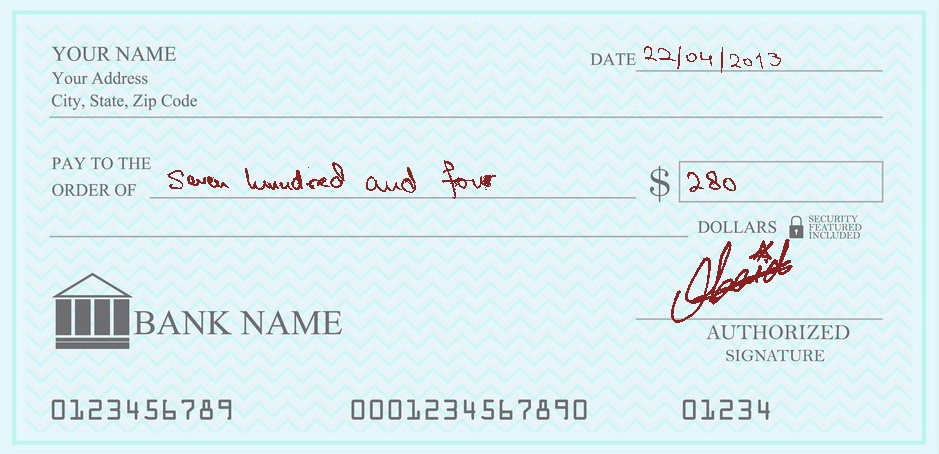 YOUR NAME
DATE 22/04/2013
Your Address
City, State, Zip Code
PAY TO THE
ORDER OF Seven hundred and four $ 280
DOLLARS SECURITY FEATURED INCLUDED
BANK NAME
AUTHORIZED
SIGNATURE
0123456789 0001234567890 01234